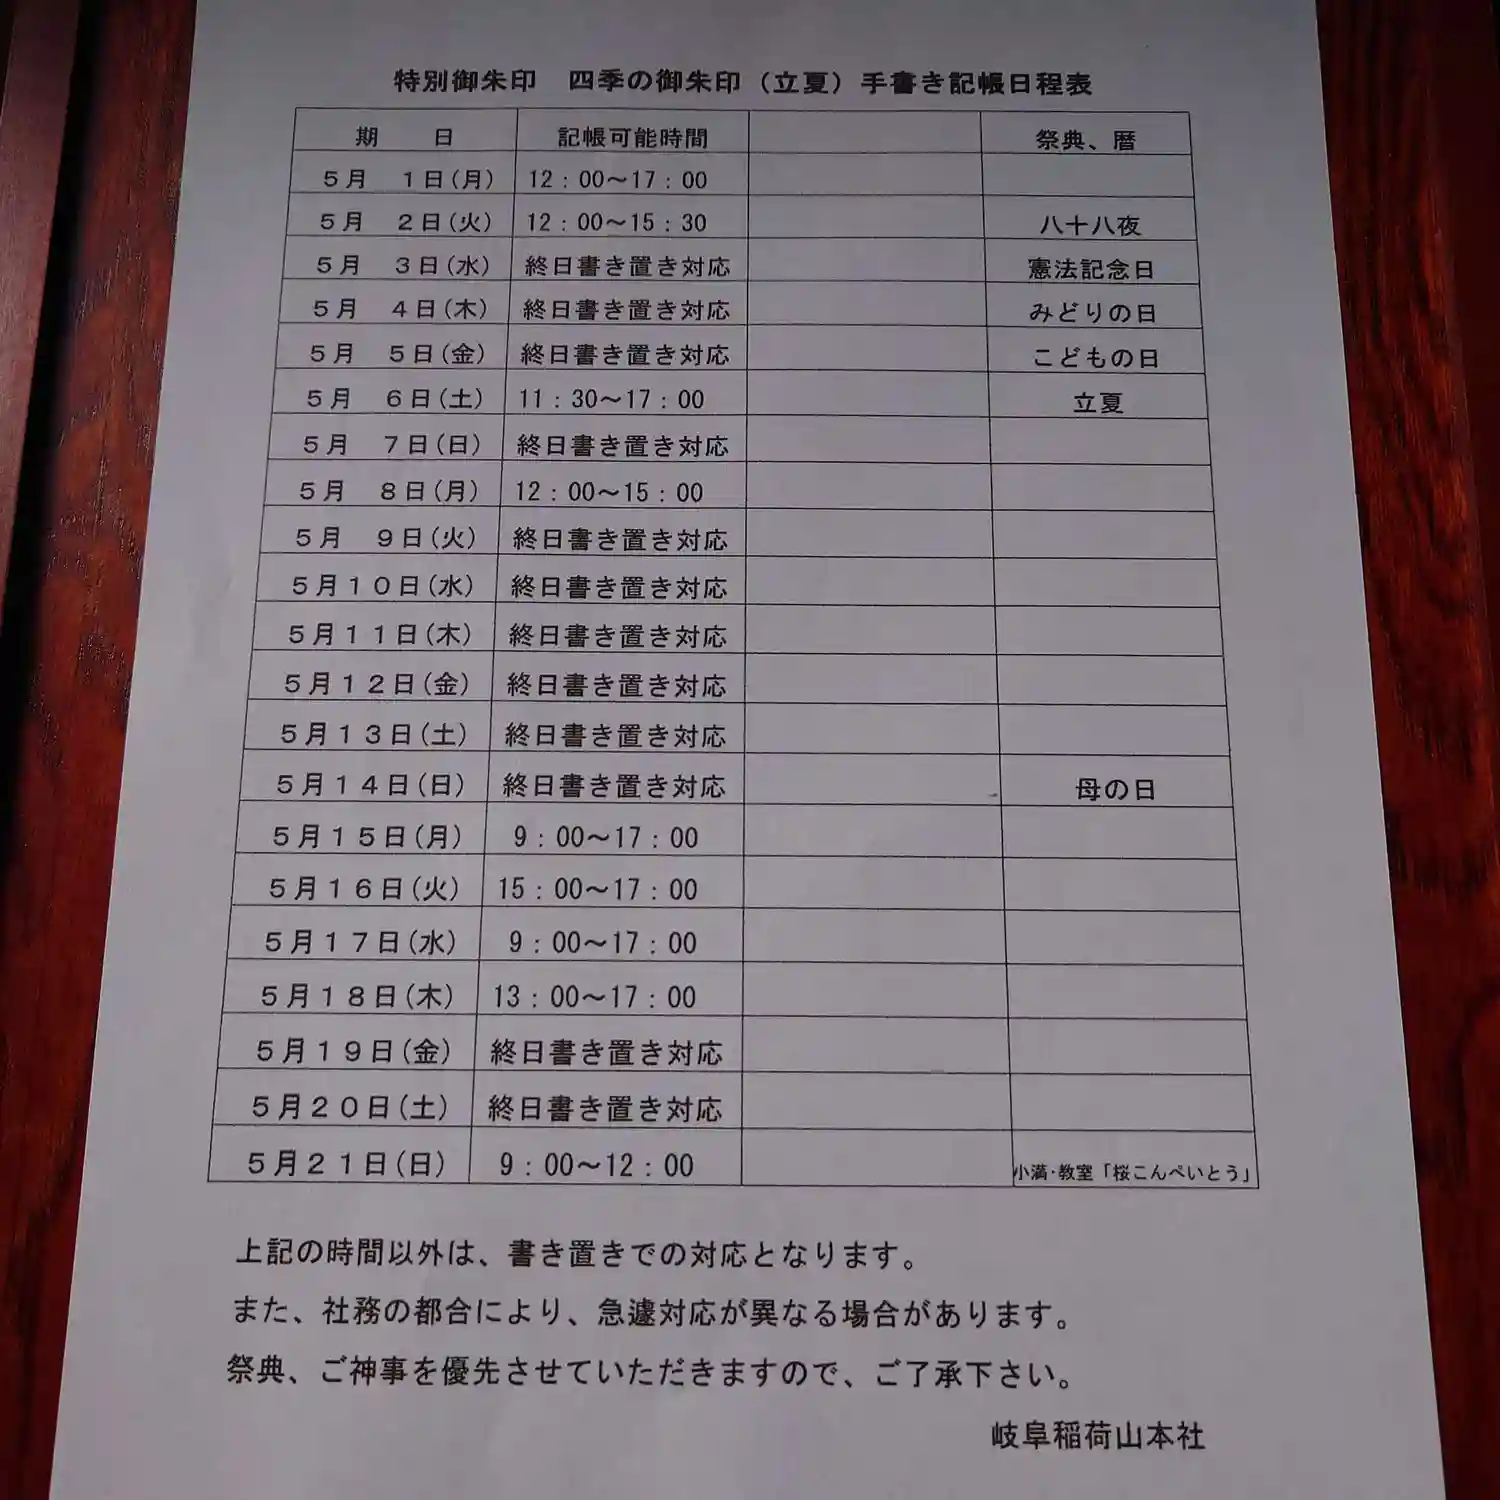 特別御朱印　四季の御朱印（立夏）手書き記帳日程表
期　　日　記帳可能時間　祭典、暦
５月　１日(月)　12：00～17：00
５月　２日(火)　12：00～15：30　八十八夜
５月　３日(水)　終日書き置き対応　憲法記念日
５月　４日(木)　終日書き置き対応　みどりの日
５月　５日(金)　終日書き置き対応　こどもの日
５月　６日(土)　11：30～17：00　立夏
５月　７日(日)　終日書き置き対応
５月　８日(月)　12：00～15：00
５月　９日(火)　終日書き置き対応
５月１０日(水)　終日書き置き対応
５月１１日(木)　終日書き置き対応
５月１２日(金)　終日書き置き対応
５月１３日(土)　終日書き置き対応
５月１４日(日)　終日書き置き対応　母の日
５月１５日(月)　9：00～17：00
５月１６日(火)　15：00～17：00
５月１７日(水)　9：00～17：00
５月１８日(木)　13：00～17：00
５月１９日(金)　終日書き置き対応
５月２０日(土)　終日書き置き対応
５月２１日(日)　9：00～12：00　小満･教室「桜こんぺいとう」
上記の時間以外は、書き置きでの対応となります。
また、社務の都合により、急遽対応が異なる場合があります。
祭典、ご神事を優先させていただきますので、ご了承下さい。
岐阜稲荷山本社